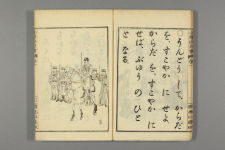 ○うんどう して、からだ
を、すこやか に せよ。
からだ を、すこやか に
せば、ぶゆう の ひと
と なる。